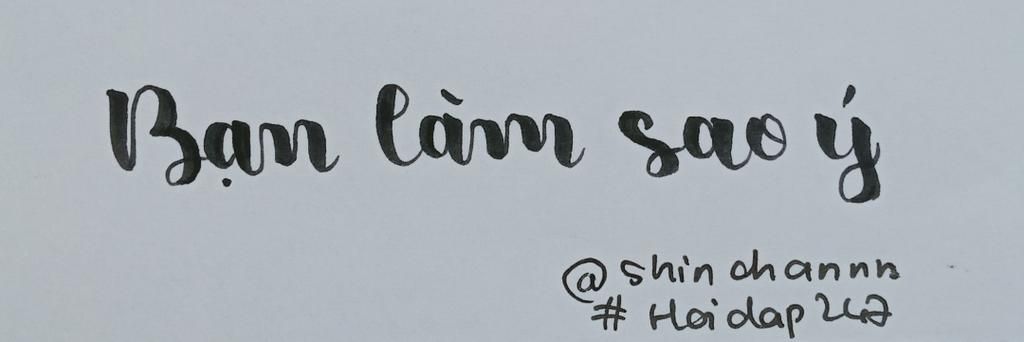 Bạn làm sao ý
@shinchannnn
#Hoidap247